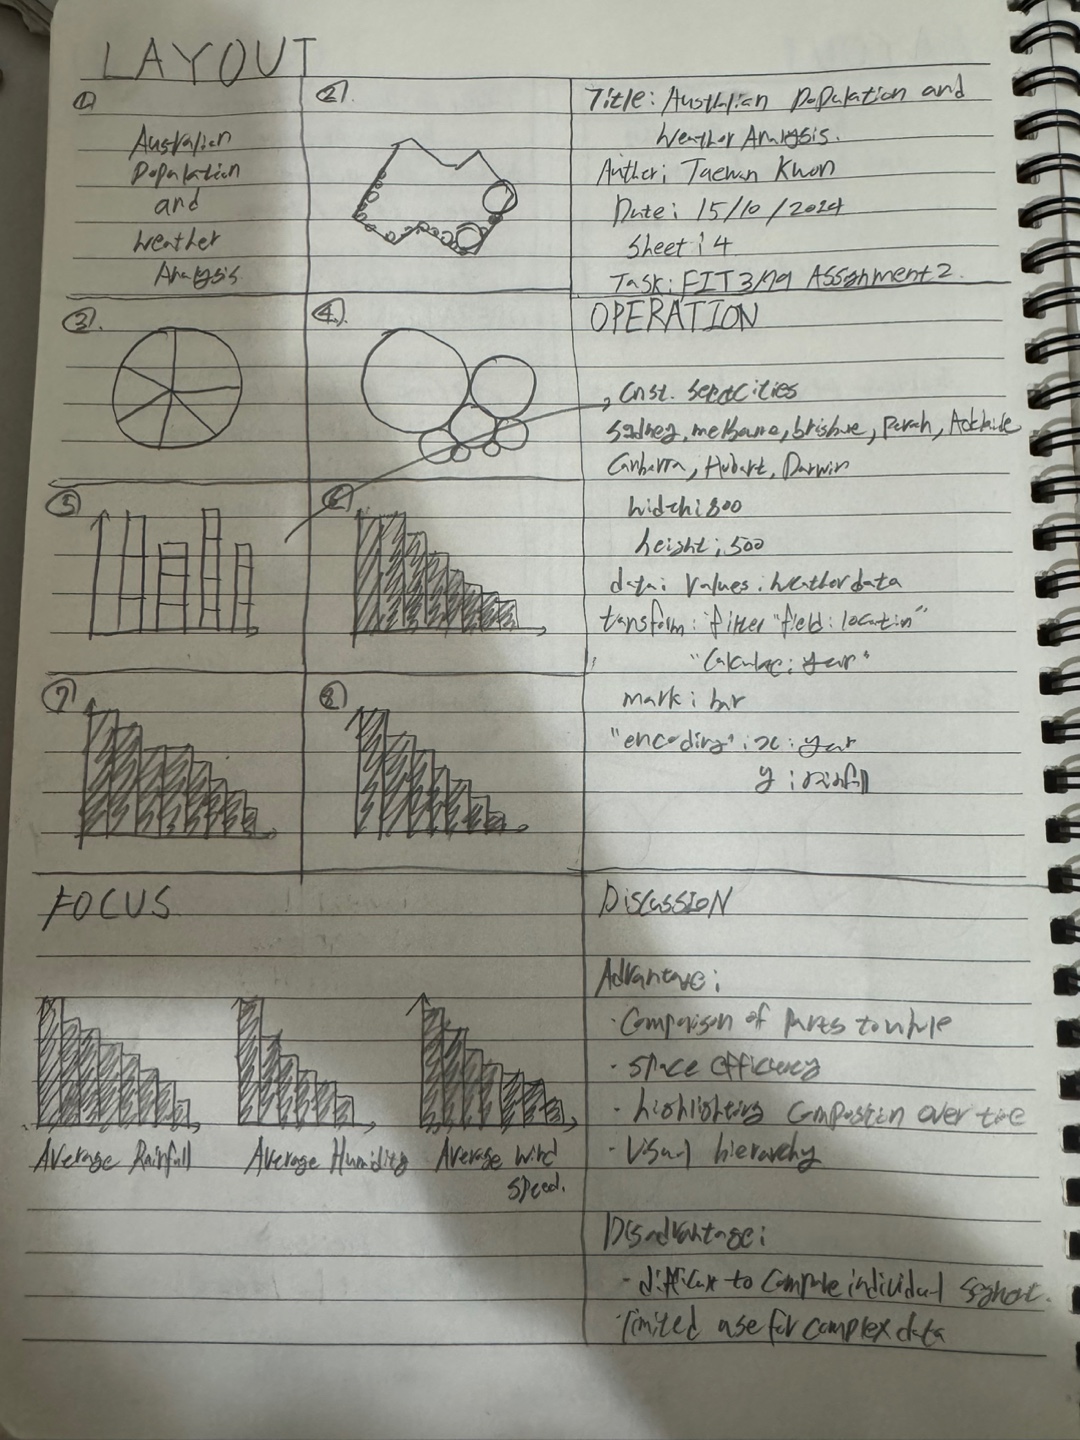 LAYOUT
①
Australian
Population
and
Weather
Analysis
②
③
④
⑤
⑥
⑦
⑧
Title: Australian Population and
Weather Analysis.
Author: Taewan Kwon
Date: 15/10/2024
Sheet: 4
Task: FIT3179 Assignment 2.
OPERATION
Sydney, melbourne, brisbane, Adelaide
Canberra, Hobart, Darwin
width: 800
height: 500
data: values: Weather data
transform: "filter "field: location"
"Calculate: year"
mark: bar
"encoding": x: year
y: rainfall
FOCUS
Average Rainfall
Average Humidity
Average Wind
speed.
DISCUSSION
Advantage:
· Comparison of parts to whole
· space efficiency
· highlighting composition over time
· visual hierarchy
Disadvantage:
· difficult to compare individual segment.
· limited use for complex data